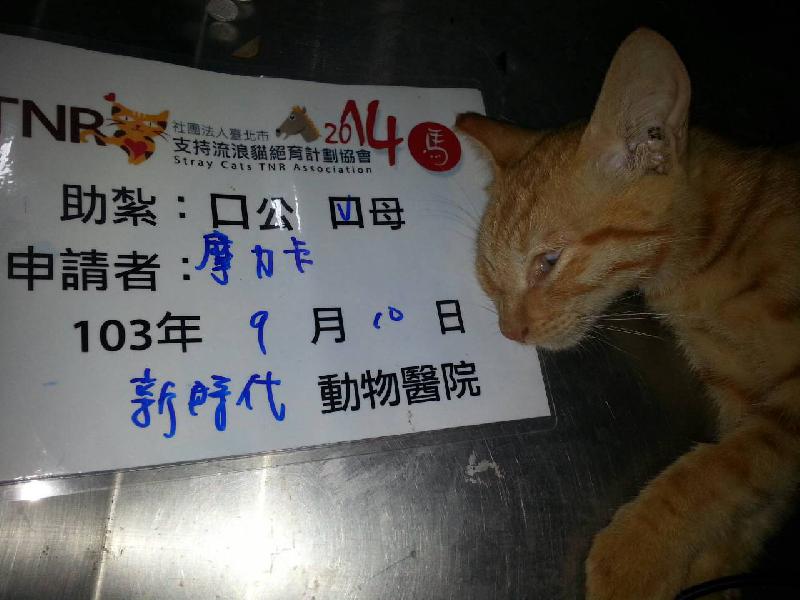 TNR 社團法人臺北市 2014 馬
支持流浪貓絕育計劃協會
Stray Cats TNR Association
助紮：口公 口母
申請者：摩力卡
103年 9 月 10 日
新時代 動物醫院